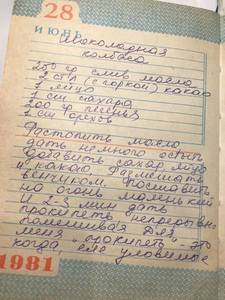 28
ИЮНЬ
Шоколадная
колбаса
250 гр слив масла
2 ст л (с горкой) какао
1 яйцо
1 ст сахара
200 гр печенья
1 ст орехов
Растопить масло
дать немного остыть
Добавить сахар, яйцо
и какао. Размешать
венчиком, поставить
на огонь маленький
и 2-3 мин дать
прокипеть непрерывно
помешивая Для
меня "прокипеть" это
когда еле уловимые
1981